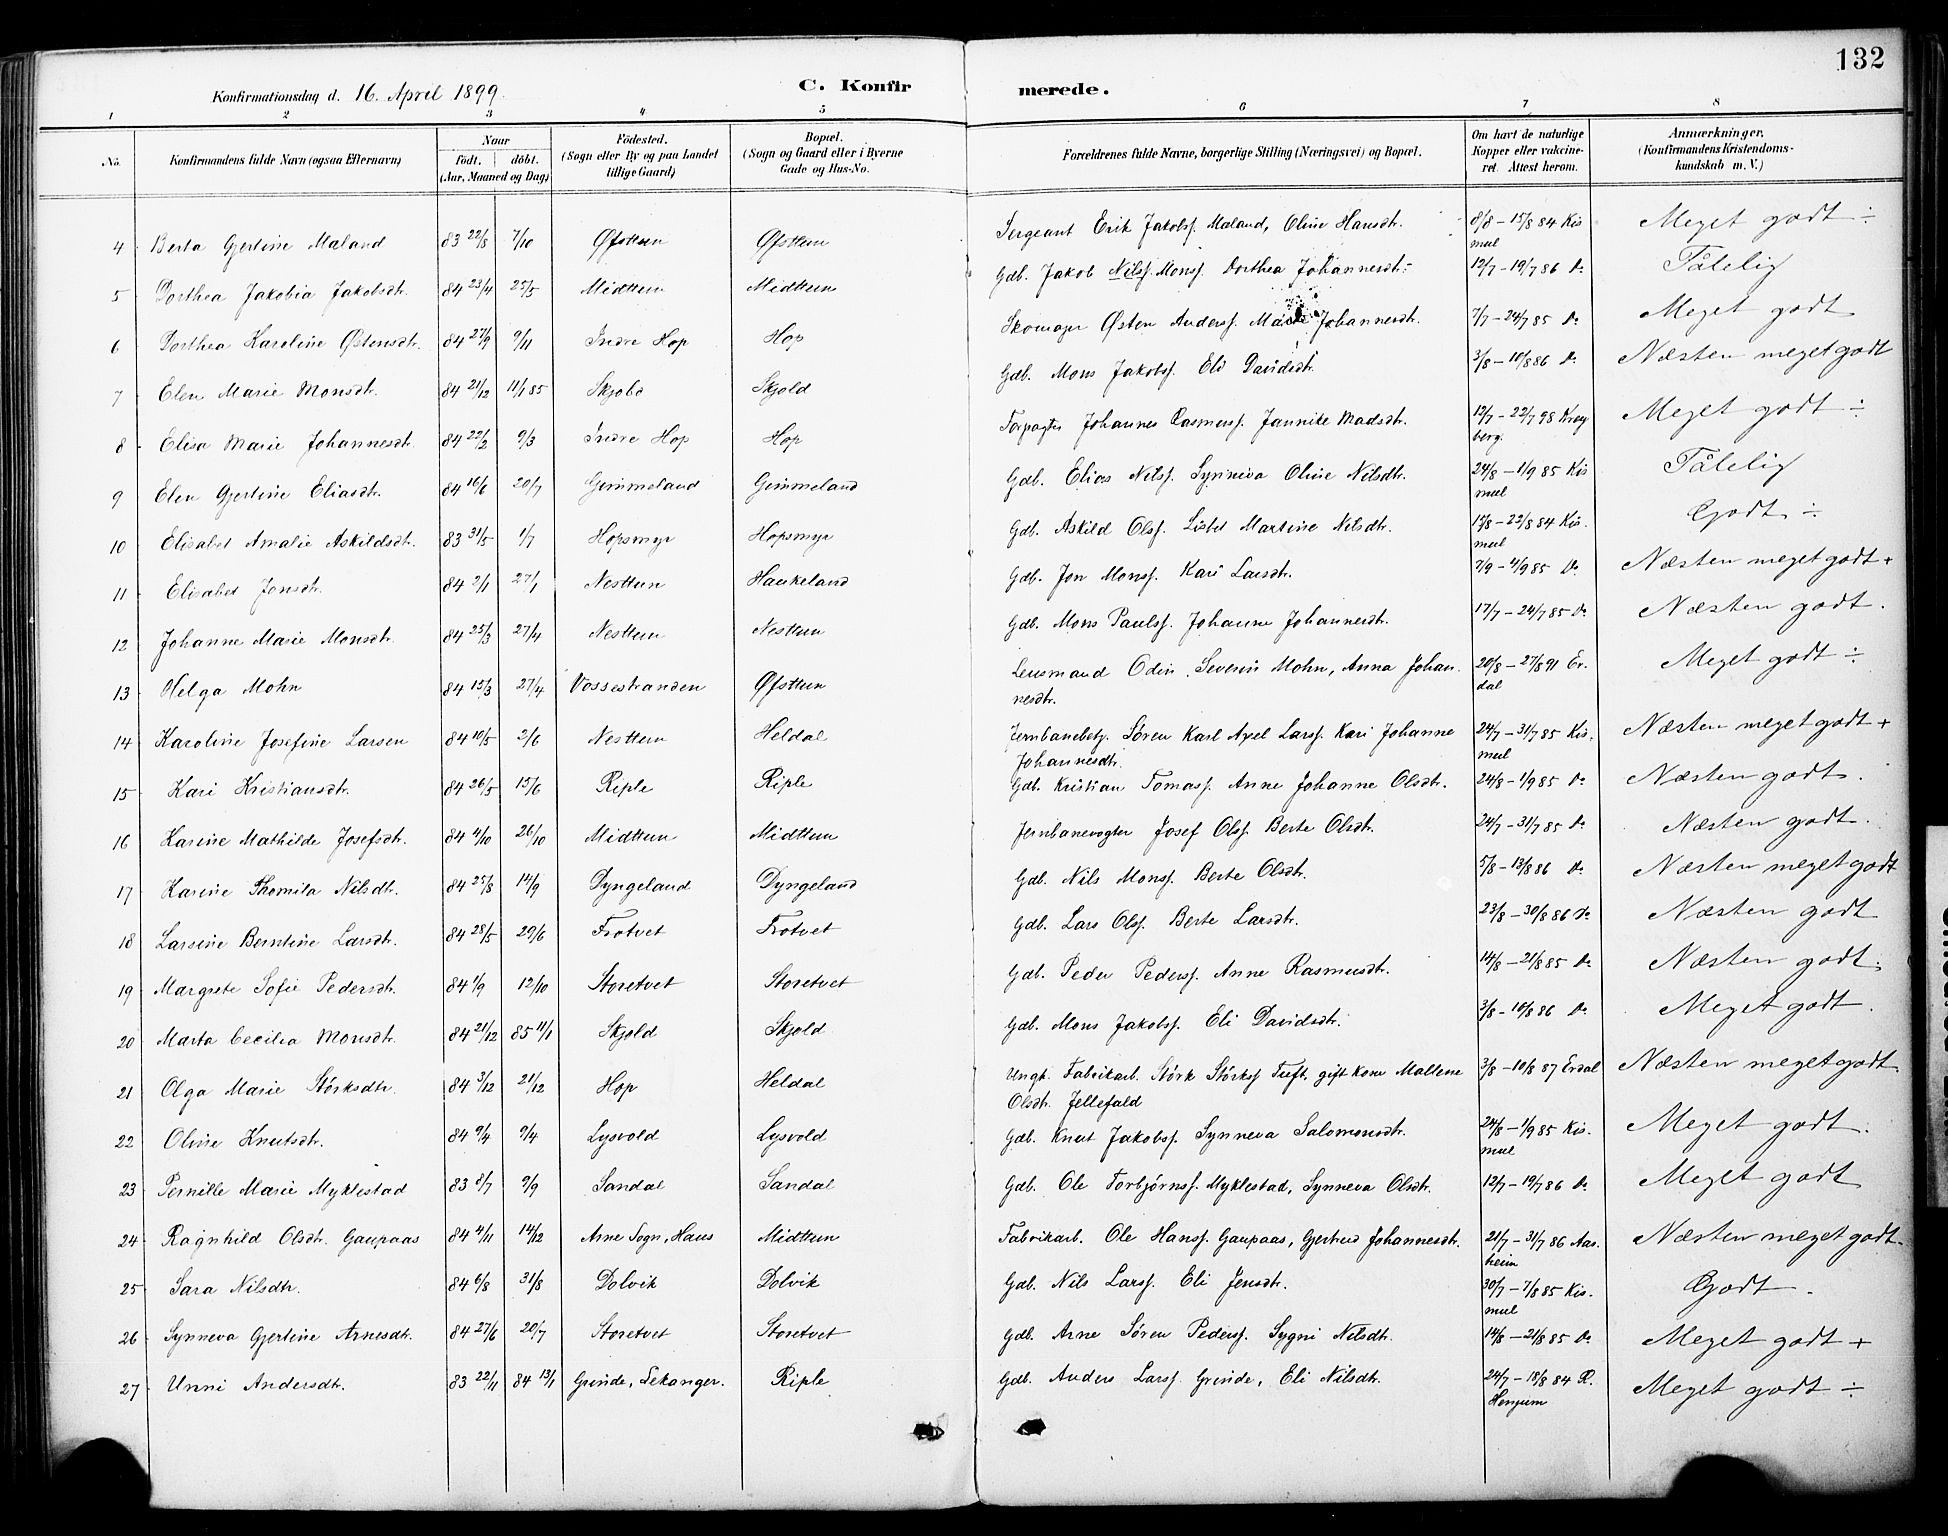 132
Konfirmationsdag d. 16. April 1899. C. Konfirmerede.
1 2 3 4 5 6 7 8
No. Konfirmandens fulde Navn (ogsaa Efternavn) Naar født. døbt. (Aar, Maaned og Dag) Fødested. (Sogn eller By og paa Landet tillige Gaard) Bopæl. (Sogn og Gaard eller i Byerne Gade og Hus-No. Forældrenes fulde Navne, borgerlige Stilling (Næringsvei) og Bopæl. Om havt de naturlige Kopper eller vakcineret. Attest herom. Anmærkninger. (Konfirmandens Kristendomskundskab m. V.)
4 Berta Gjertine Maland 83 22/8 7/10 Øfsttun Øfsttun Sergeant Erik Jakobsf. Maland, Oline Hansdtr. 8/8 – 15/8 84 Kismul Meget godt ÷
5 Dorthea Jakobia Jakobsdtr. 84 23/4 25/5 Midttun Midttun Gdb. Jakob Nilsf. Monsf. Dorthea Johannesdtr. 12/7 – 19/7 86 Do Tålelig
6 Dorthea Karoline Østensdtr. 84 27/9 9/11 Indre Hop Hop Skomager Østen Andersf. Marie Johannesdtr. 7/7 – 24/7 85 Do Meget godt
7 Elen Marie Monsdtr. 84 21/12 11/1 85 Skjold Skjold Gdb. Mons Jakobsf. Eli Davidsdtr. 3/8 – 10/8 86 Do Næsten meget godt
8 Elisa Marie Johannesdtr. 84 22/2 9/3 Indre Hop Hop Forpagter Johannes Rasmusf. Jannike Madsdtr. 12/7 – 22/7 98 Krogberg. Meget godt ÷
9 Elen Gjertine Eliasdtr. 84 16/6 20/7 Gimmeland Gimmeland Gdb. Elias Nilsf. Synneva Oline Nilsdtr. 24/8 – 1/9 85 Kismul Tålelig
10 Elisabet Amalie Askildsdtr. 83 31/5 1/7 Hopsmyr Hopsmyr Gdb. Askild Olsf. Lisbet Martine Nilsdtr. 22/8 84 Kismul Godt ÷
11 Elisabet Jonsdtr. 84 2/1 27/1 Nesttun Haukeland Gdb. Jon Monsf. Kari Larsdtr. 85 Do Næsten meget godt +
12 Johanne Marie Monsdtr. 84 25/3 27/4 Nesttun Nesttun Gdb. Mons Paulsf. Johanne Johannesdtr. 17/7 – 24/7 85 Do Næsten godt.
13 Helga Mohn 84 15/3 27/4 Vossestranden Øfsttun Lensmand Odin Severin Mohn, Anna Johannesdtr. 20/8 – 27/8 91 Erdal Meget godt ÷
14 Karoline Josefine Larsen 84 10/5 2/6 Nesttun Heldal Jernbanebetj. Søren Karl Axel Larsf. Kari Johanne Johannesdtr. 24/7 – 31/7 85 Kismul Næsten meget godt +
15 Kari Kristiansdtr. 84 26/5 15/6 Riple Riple Gdb. Kristian Tomasf. Anne Johanne Olsdtr. 24/8 – 1/9 85 Do Næsten godt.
16 Karine Mathilde Josefsdtr. 84 4/10 26/10 Midttun Midttun Jernbanevogter Josef Olsf. Berte Olsdtr. 24/7 – 31/7 85 Do Næsten godt.
17 Karine Thomila Nilsdtr. 84 25/8 14/9 Dyngeland Dyngeland Gdb. Nils Monsf. Berte Olsdtr. 5/8 – 13/8 86 Do Næsten meget godt
18 Larsine Berntine Larsdtr. 84 28/5 29/6 Trotvet Trotvet Gdb. Lars Olsf. Berte Larsdtr. 23/8 – 30/8 86 Do Næsten godt
19 Margrete Sofie Pedersdtr. 84 1/9 12/10 Storetvet Storetvet Gdb. Peder Pedersf. Anne Rasmusdtr. 14/8 – 21/8 85 Do Næsten godt.
20 Marta Cecilia Monsdtr. 84 21/12 85 11/1 Skjold Skjold Gdb. Mons Jakobsf. Eli Davidsdtr. 3/8 – 10/8 86 Do Meget godt.
21 Olga Marie Størksdtr. 84 3/12 21/12 Hop Heldal Ungk. Fabrikarb. Størk Størksf Tuft, gift Kone Maltene Olsdtr. Jellefald 3/8 – 10/8 87 Erdal Næsten meget godt
22 Oline Knutsdtr. 84 9/4 Lysvold Lysvold Gdb. Knut Jakobsf. Synneva Salomonsdtr. 24/8 – 1/9 85 Kismul Meget godt.
23 Pernille Marie Myklestad 83 8/7 9/9 Sandal Sandal Gdb. Ole Torbjørnsf. Myklestad, Synneva Olsdtr. 12/7 – 19/7 86 Do Meget godt
24 Ragnhild Olsdtr. Gaupaas 84 4/11 14/12 Arne Sogn, Haus Midttun Fabrikarb. Ole Hansf. Gaupaas, Gjertrud Johannesdtr. 21/7 – 31/7 86 Aasheim Næsten meget godt.
25 Sara Nilsdtr. 84 6/8 31/8 Dolvik Dolvik Gdb. Nils Larsf. Eli Jensdtr. 30/7 – 7/8 85 Kismul Godt.
26 Synneva Gjertine Arnesdtr. 84 27/6 20/7 Storetvet Storetvet Gdb. Arne Søren Pedersf. Sygni Nilsdtr. 14/8 – 21/8 85 Do Meget godt +
27 Unni Andersdtr. 83 22/11 84 13/1 Grinde, Lekanger. Riple Gdb. Anders Larsf. Grinde, Eli Nilsdtr. 24/7 – 18/8 84 R. Henjum Meget godt ÷